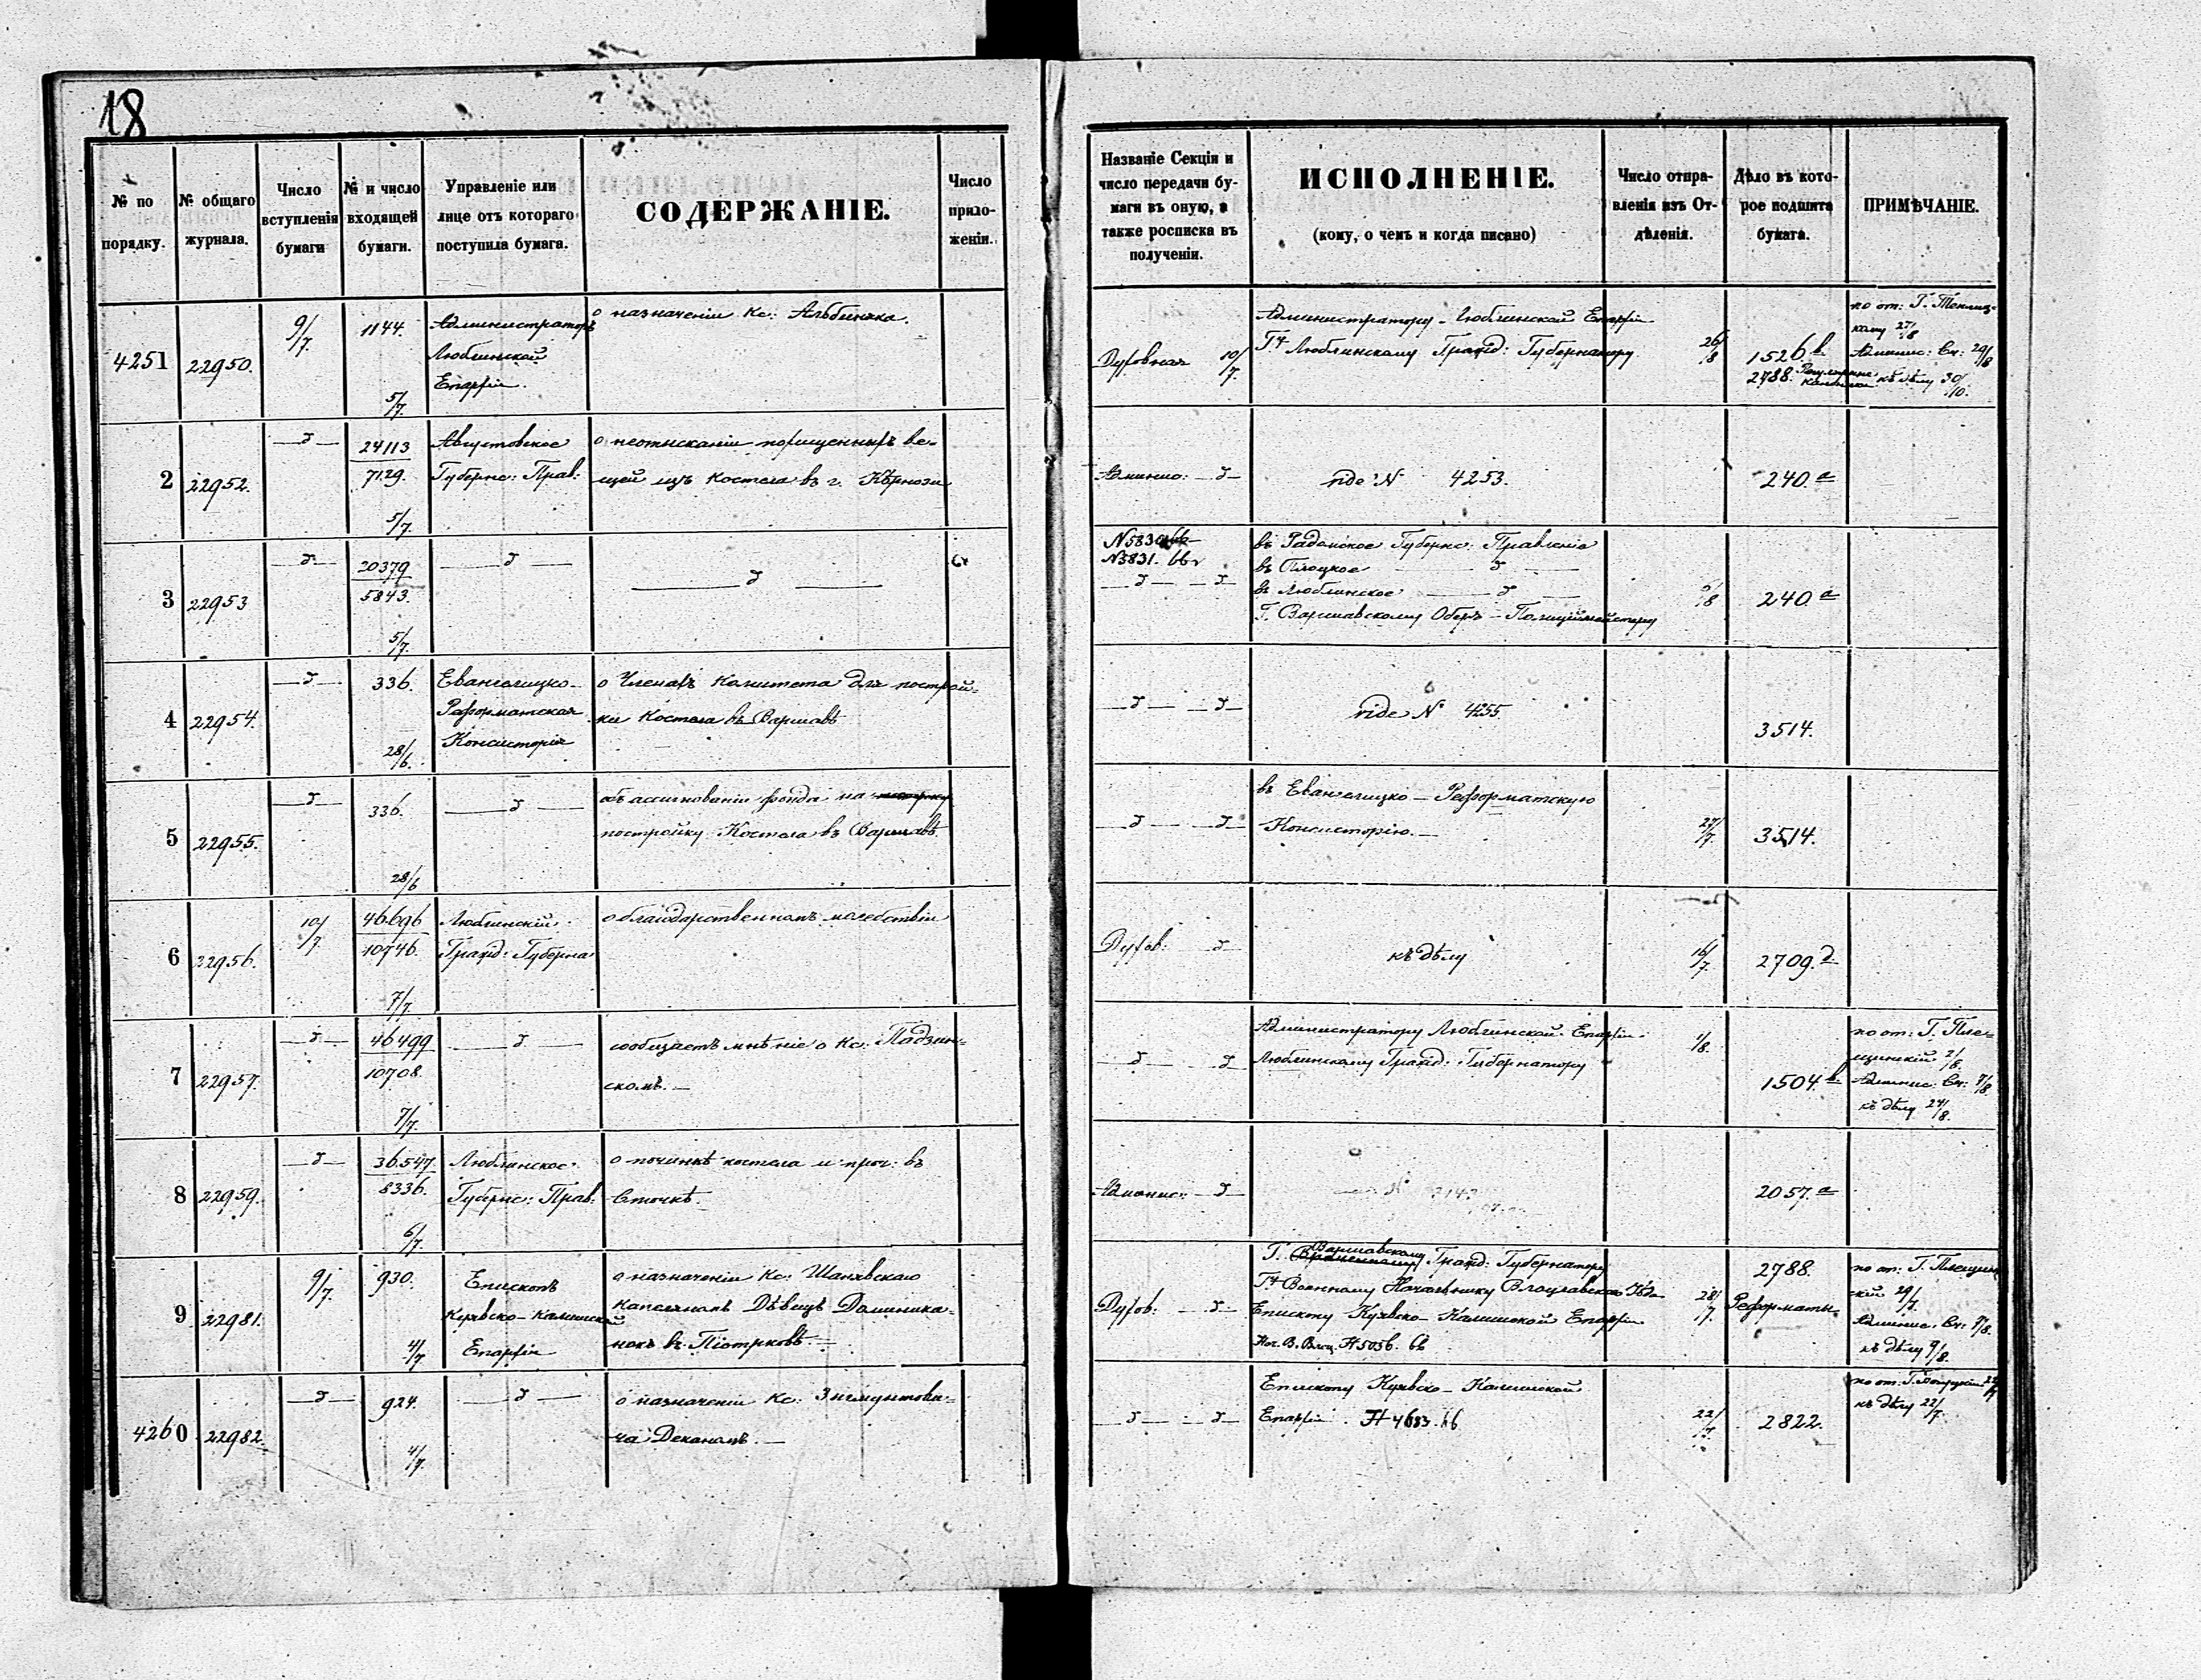 18
№ по порядку.
№ общаго журнала.
Число вступленія бумаги
№ и число входящей бумаги.
Управленіе или лице отъ котораго поступила бумага.
СОДЕРЖАНІЕ.
Число приложеніи.
Названіе Секціи и число передачи бумаги въ оную, а также росписка въ полученіи.
ИСПОЛНЕНІЕ.
(кому, о чемъ и когда писано)
Число отправленія изъ Отдѣленія.
Дѣло въ которое подшита бумага.
ПРИМѢЧАНІЕ.
4251 22950. 9/7. 1144. 5/7.
Администраторъ
Люблинской
Епархіи.
о назначеніи Кс:
Духовная 10/7.
Администратору Люблинской Епархіи
Гу Люблинскому Гражд: Губернатору
26/8
1526 в
2788.
по от: Г.
27/8
Админис: Сч: 29/8
къ дѣлу 30/10.
2 22952. 24113 7129. 5/7.
Августовское
Губернс: Прав:
о неотысканіи похищенныхъ ве-
щей изъ костела въ г.
Админис:
vide N 4253.
240. а
3 22953 20379 5843. 5/7.
N 5831. 66
въ Радомское Губернс: Правленіе
въ Плоцкое
въ Люблинское
Г. Варшавскому Оберъ-Полицеймейстеру
/8
240 а
4 22954. 336. 28/6.
Евангелицко-
Реформатская
Консисторія
о Членахъ Комитета для построй-
ки Костела въ Варшавѣ
vide N 4255.
3514.
5 22955. 336. 28/6
объ ассигнованіи фонда на
постройку Костела въ Варшавѣ
въ Евангелицко-Реформатскую
Консисторію.
27/7.
3514.
6 22956. 10/7. 46696 10746. 7/7.
Люблинскій
Гражд: Губерна:
о благодарственномъ молебствіи
Духов:
къ дѣлу
16/7.
2709. д
7 22957. 46499 10708. 7/7.
сообщаетъ мнѣніе о Кс: Падзин-
скомъ.
Администратору Люблинской Епархіи
Люблинскому Гражд: Губернатору
1/8.
1504. в
по от: Г. Пле-
щинскій 2/8.
Админис: Сч: 7/8.
къ дѣлу 24/8.
8 22959. 36547. 8336. 6/7.
Люблинское
Губернс: Прав:
о починкѣ костела и проч: въ
Сточкѣ
Админис:
2057. а
9 22981. 9/7. 930. 4/7
Епископъ
Куявско-Калишской
Епархіи
о назначеніи Кс: Шанявскаго
Капеланомъ Дѣвицъ Доминика-
нокъ въ Піотрковѣ.
Духов:
Г. Варшавскому Гражд: Губернатору
Гу Военному Начальнику Влоцлавскаго Уѣзда
Епископу Куявско-Калишской Епархіи
28/7.
2788.
Реформаты.
по от: Г. Плещин-
скій 29/7.
Админис. Сч: 7/8.
къ дѣлу 9/8.
4260 22982. 924. 4/7.
о назначеніи Кс: Зигмунтови-
ча Деканомъ.
Епископу Куявско-Калишской
Епархіи. N 4683. 66
22/7.
2822.
по от: Г.
къ дѣлу 22/7.